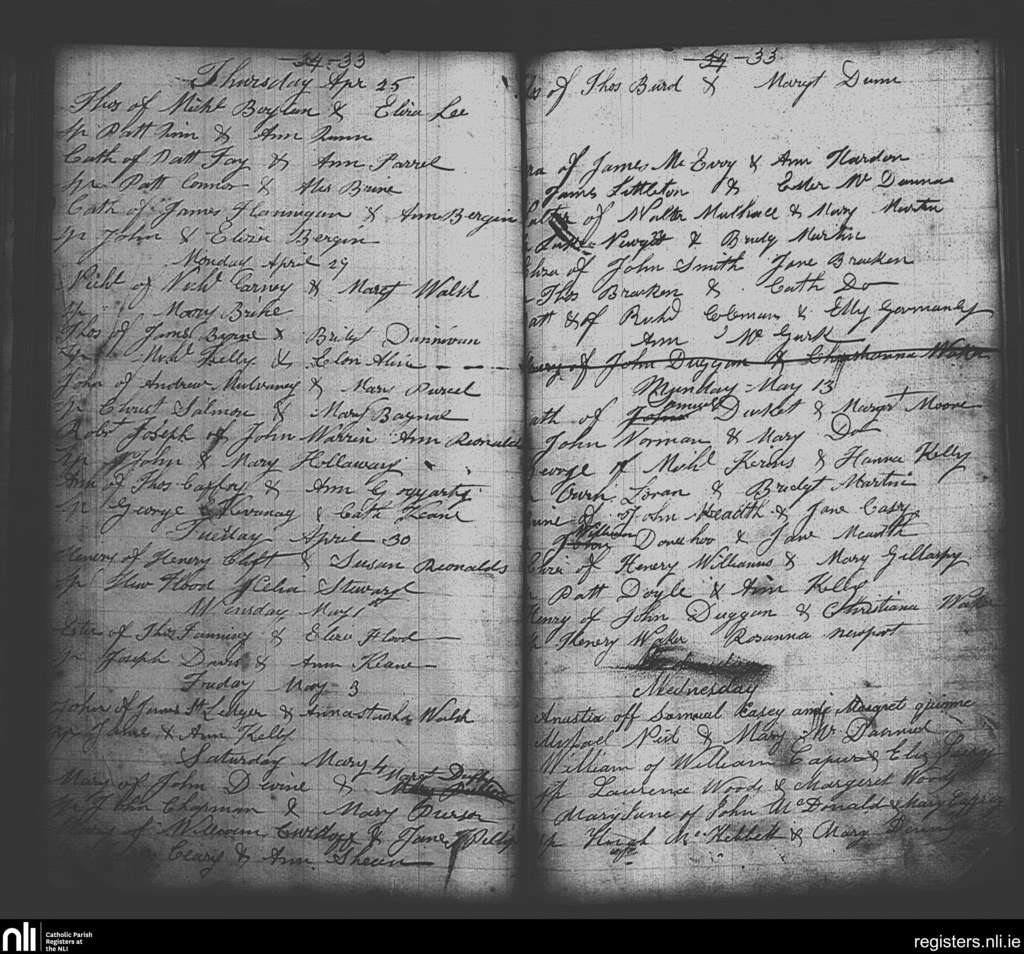 34-33
Thursday Apr 25
Thos of Michl Boylan & Eliza Lee
Sp Patt & Ann
Cath of Patt Fay & Ann Farrel
Sp Patt Connor & Alis Brine
Cath of James Flannigan & Ann Bergin
Sp John & Eliza Bergin
Monday April 29
Richd of Richd Carney & Margt Walsh
Sp Mary Brike
Thos of James Byrne & Bridgt Dunnivan
Sp Kelly &
John of Andrew Mulvaney & Mary Purcel
Sp Christ Salmon & Mary Baynal
Robt Joseph of John Warrin Ann Reonalds
Sp John & Mary Hollaway
Ann of Thos Caffry & Ann Gogarty
Sp George Kevanay & Cath Keane
Tuesday April 30
Henery of Henery Clift & Susan Reonalds
Sp Hew Flood Celia Steward
Wensday May 1st
Ester of Thos Fanning & Eliza Flood
Sp Joseph Davis & Ann Keane
Friday May 3
John of James St Leger & Annastasha Walsh
Sp James & Ann Kelly
Saturday May 4
Mary of John Divine & Margt Duffy
Sp John Chapman & Mary Pierson
of William & Jane Pelly
Ceary & Ann Sheein
34-33
of Thos Burd & Margt Dunn
of James Mc Evoy & Ann Hardon
James Littleton & Ester Mc Donna
of Walter Mulhall & Mary Martin
& Bridy Martin
Eliza of John Smith Jane Bracken
Thos Bracken & Cath Do
of Richd Coleman & Elly Gormanly
Ann Mc Gurk
of John Duggan & Christianna Waker
Munday May 13
Cath of Samuel Ducket & Margrt Moore
John Norman & Mary Do
George of Michl Kerins & Hanna Kelly
Loran & Bridgt Martin
of John Headth & Jane Casey
William Donehoo & Jane Meadth
Eliza of Henery Williams & Mary Gillaspy
Patt Doyle & Ann Kelly
Henry of John Duggan & Christiana Waker
Sp Henery Waker Rosanna Newport
Wednesday
Anastia off Samual Casey and Margret quinne
Michael Neil & Mary Mc Danniel
William of William Capur & Eliz
Sp Laurence Woods & Margaret Woods
Mary Jane of John McDonald & Mary
Sp Hugh & Mary
nli
Catholic Parish
Registers at
the NLI
registers.nli.ie